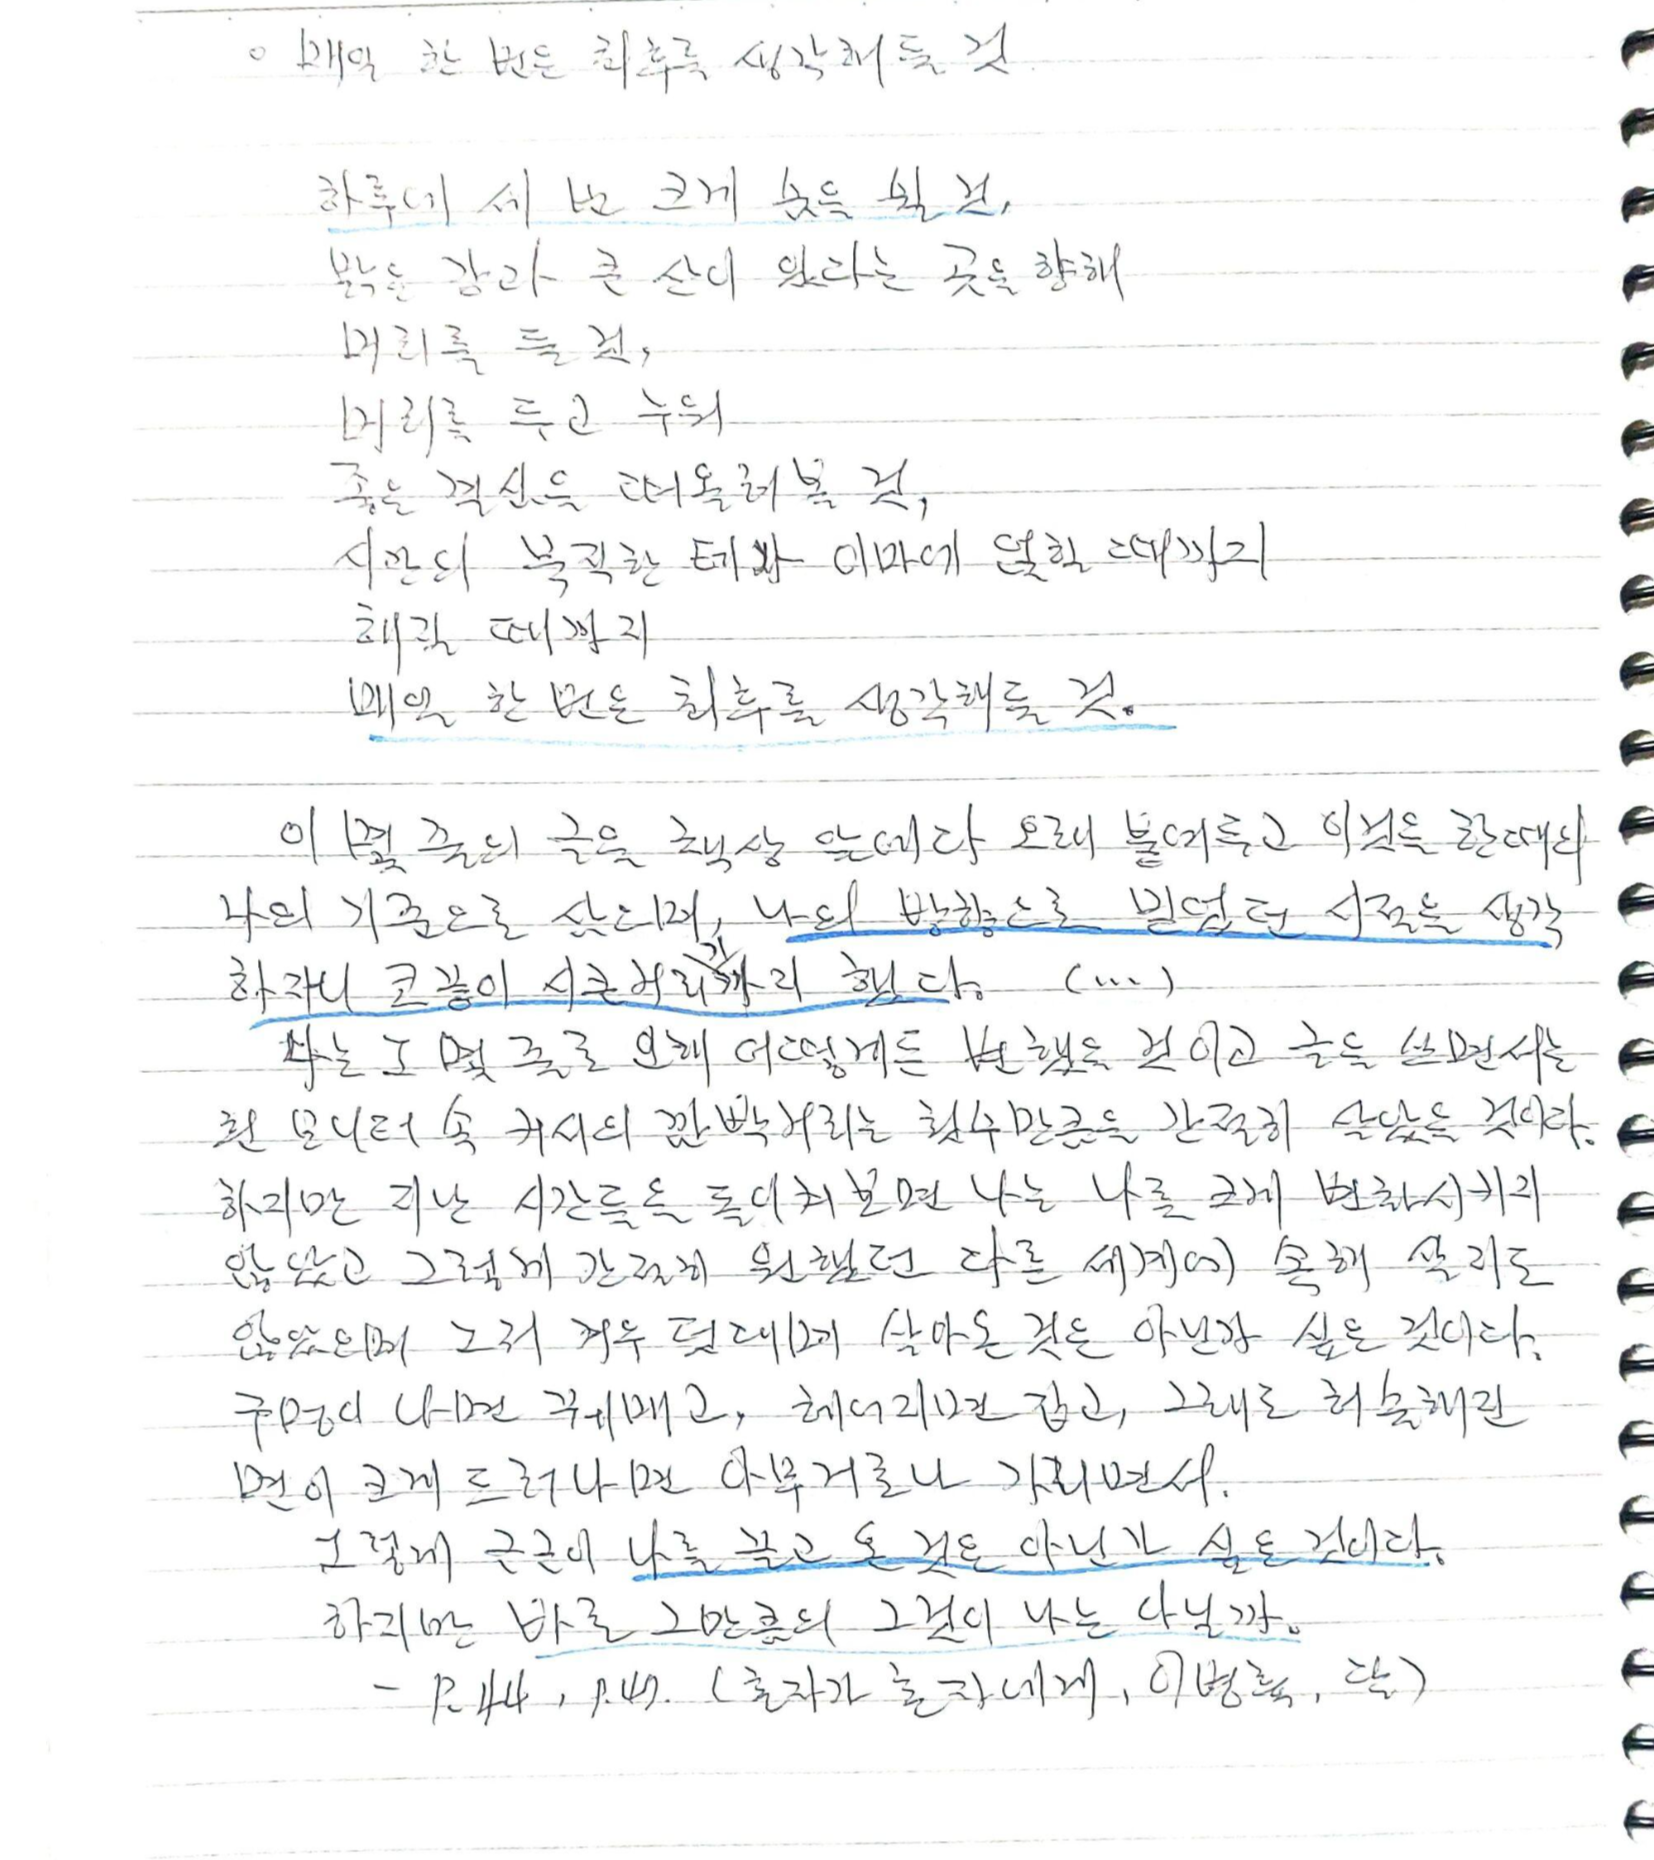 ◦ 매일 한 번은 최후를 생각해둘 것
하루에 세 번 크게 숨을 쉴 것,
맑은 강과 큰 산이 있다는 곳을 향해
머리를 둘 것,
머리를 두고 누워
좋은 결심을 떠올려볼 것,
시간의 묵직한 테가 이마에 얹힐 때까지
해질 때까지
매일 한 번은 최후를 생각해둘 것.
이 몇 줄의 글을 책상 앞에다 오래 붙여두고 이것을 한때의
나의 기준으로 삼으며, 나의 방향으로 믿었던 시절을 생각
하자니 코끝이 시큰거리기까지 했다. (...)
나는 그 몇 줄로 인해 어떻게든 변했을 것이고 글을 쓰면서는
흰 모니터 속 커서의 깜빡거리는 횟수만큼을 간절히 살았을 것이다.
하지만 지난 시간들을 돌이켜보면 나는 나를 크게 변화시키지
않았고 그렇게 간절히 원했던 다른 세계에 속해 살지도
않았으며 그저 겨우 덧대며 살아온 것은 아닌가 싶은 것이다.
구멍이 나면 꿰매고, 헤어지면 잡고, 그래도 허술해진
면이 크게 드러나면 아무거로나 가리면서.
그렇게 근근이 나를 끌고 온 것은 아닌가 싶은 것이다.
하지만 바로 그만큼의 그것이 나는 다닐까.
- P.44, P.47. (혼자가 혼자에게, 이병률, 달)